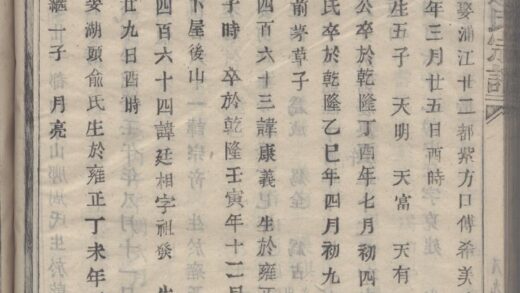 氏宗譜
娶浦江廿二都紫方口傅希美
年三月廿五日酉時
生五子 天明 天富 天有
公卒於乾隆丁酉年七月初四
氏卒於乾隆乙巳年四月初九
前茅草子
四百六十三諱康義生於雍正
子時 卒於乾隆壬寅年十二月
下屋後山
四百六十四諱廷相字祖發 生
廿九日酉時
娶湖頭俞氏生於雍正丁未年
繼一子 月亮